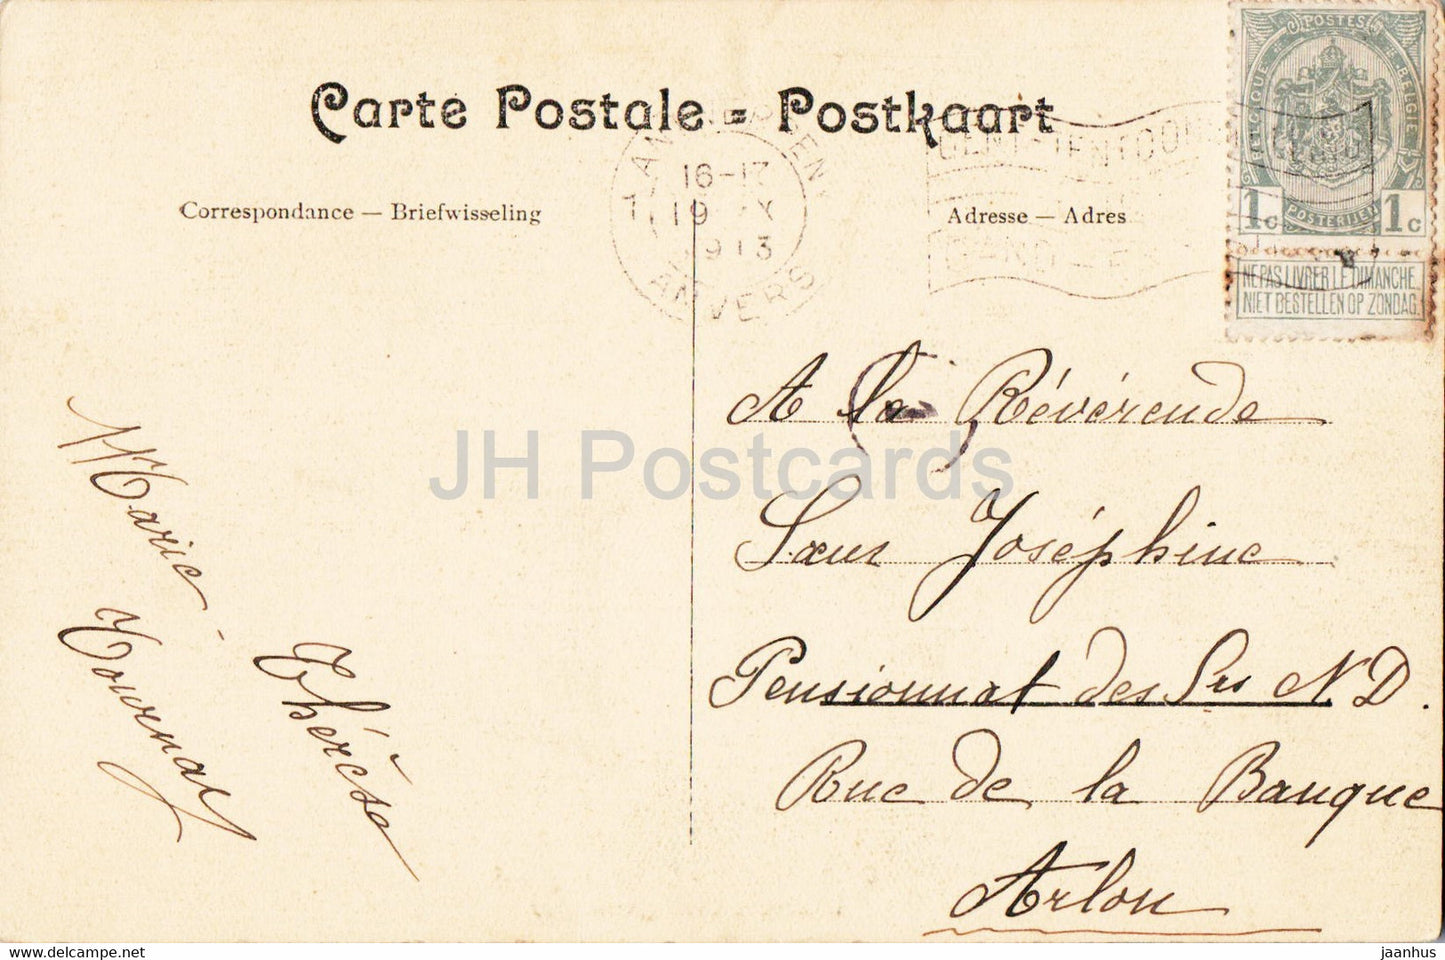 Carte Postale = Postkaart
POSTES
BELGIQUE
BELGIE
1c POSTERIJEN 1c
NE PAS LIVRER LE DIMANCHE
NIET BESTELLEN OP ZONDAG.
16-17
19 X
1913
ANVERS
GENT
GAND
Correspondance — Briefwisseling
Adresse — Adres
A la Révérende
Sœur Joséphine
Pensionnat des Srs N. D.
Rue de la Banque
Arlon
Marie-
Thérèse
Tournay
JH Postcards
www.hippostcard.com
jaanhus